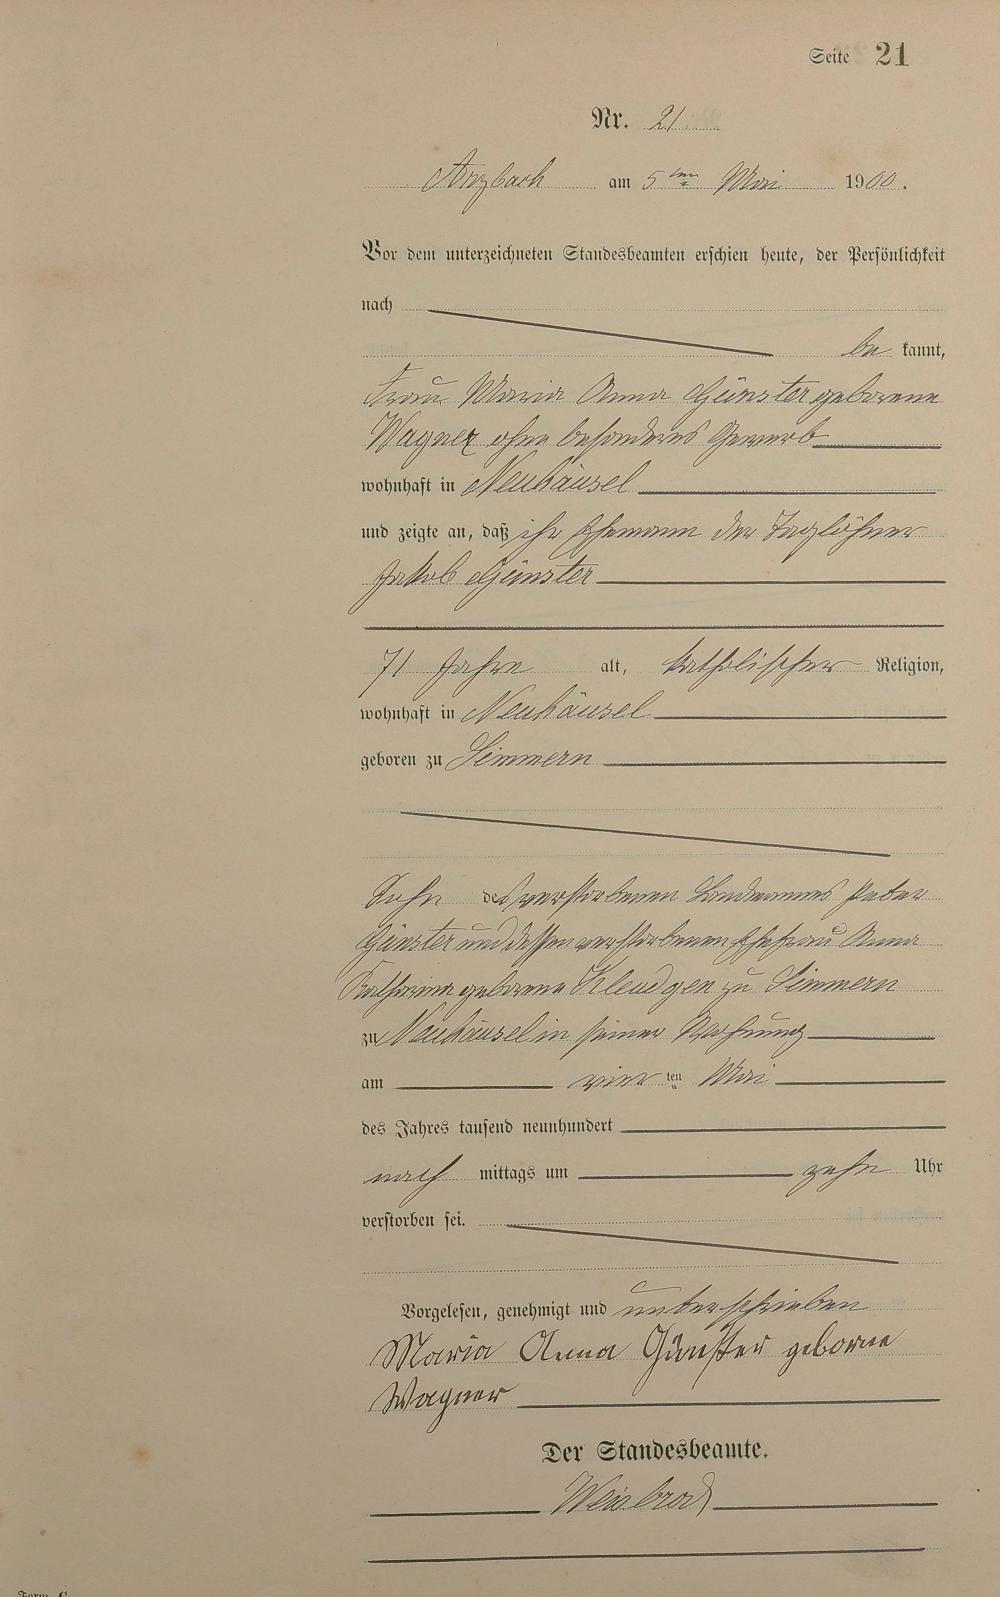 Seite 21
Nr. 21
Arzbach am 5ten Mai 1900.
Vor dem unterzeichneten Standesbeamten erschien heute, der Persönlichkeit
nach
be kannt,
Frau Maria Anna Günster geborene
Wagner ohne besonderes Gewerb
wohnhaft in Neuhäusel
und zeigte an, daß ihr Ehemann der Taglöhner
Jakob Günster
71 Jahre alt, katholischer Religion,
wohnhaft in Neuhäusel
geboren zu Simmern
Sohn des verstorbenen Landmannes Peter
Günster und dessen verstorbenen Ehefrau Anna
Katharina geborene Kleudgen zu Simmern
zu Neuhäusel in seiner Wohnung
am vier ten Mai
des Jahres tausend neunhundert
nach mittags um zehn Uhr
verstorben sei.
Vorgelesen, genehmigt und unterschrieben
Maria Anna Günster geborne
Wagner
Der Standesbeamte.
Weisbrod